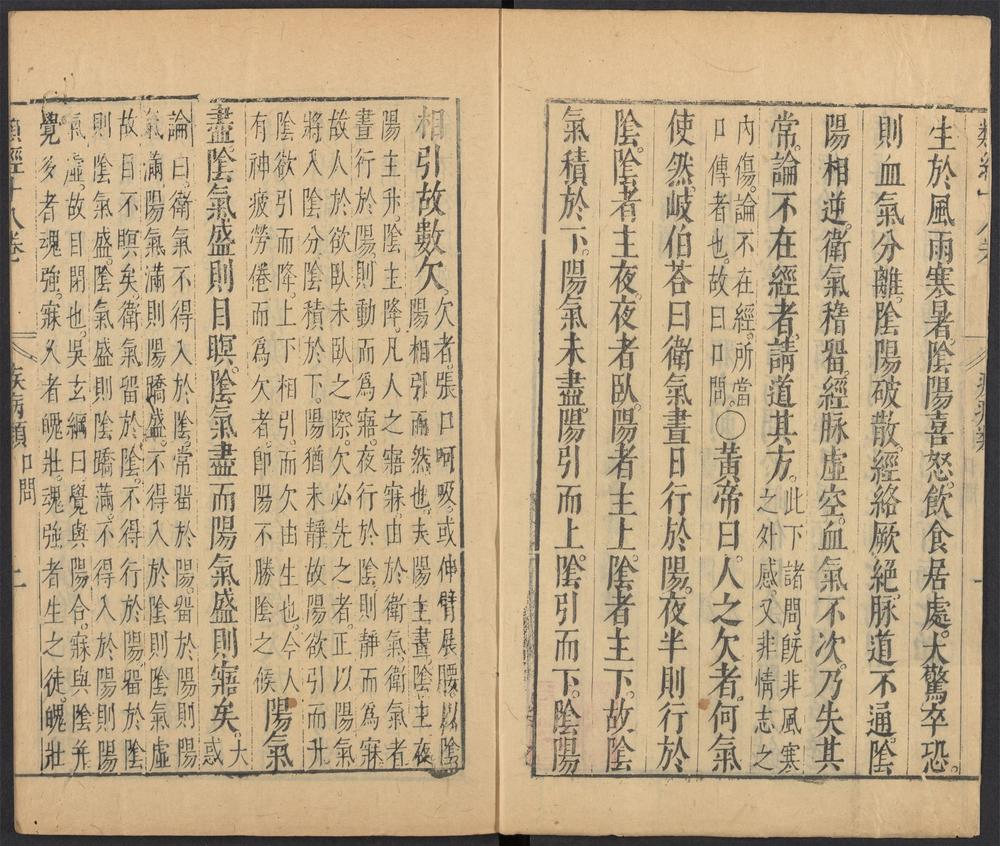 類經十八卷
疾病類
生於風雨寒暑。陰陽喜怒。飲食居處。大驚卒恐。
則血氣分離。陰陽破散。經絡厥絕。脉道不通。陰
陽相逆。衛氣稽畱。經脉虛空。血氣不次。乃失其
常。論不在經者。請道其方。
此下諸問。旣非風寒
之外感。又非情志之
內傷。論不在經。所當
口傳者也。故曰口問。
○黃帝曰。人之欠者。何氣
使然。岐伯荅曰。衛氣晝日行於陽。夜半則行於
陰。陰者主夜。夜者臥。陽者主上。陰者主下。故陰
氣積於下。陽氣未盡。陽引而上。陰引而下。陰陽
相引。故數欠。
欠者。張口呵吸。或伸臂展腰。以陰
陽相引而然也。夫陽主晝。陰主夜
陽主升。陰主降。凡人之寤寐。由於衛氣。衛氣者
晝行於陽。則動而爲寤。夜行於陰。則靜而爲寐
故人於欲臥未臥之際。欠必先之者。正以陽氣
將入陰分。陰積於下。陽猶未靜。故陽欲引而升
陰欲引而降。上下相引。而欠由生也。今人
有神疲勞倦而爲欠者。卽陽不勝陰之候
陽氣
盡。陰氣盛。則目瞑。陰氣盡而陽氣盛。則寤矣。
大
惑
論曰。衛氣不得入於陰。常畱於陽。畱於陽則陽
氣滿。陽氣滿則陽蹻盛。不得入於陰則陰氣虛
故目不瞑矣。衛氣畱於陰。不得行於陽。畱於陰
則陰氣盛。陰氣盛則陰蹻滿。不得入於陽則陽
氣虛。故目閉也。吳玄綱曰。覺與陽合。寐與陰幷
覺多者魂強。寐久者魄壯。魂強者生之徒。魄壯
類經十八卷
疾病類
口問